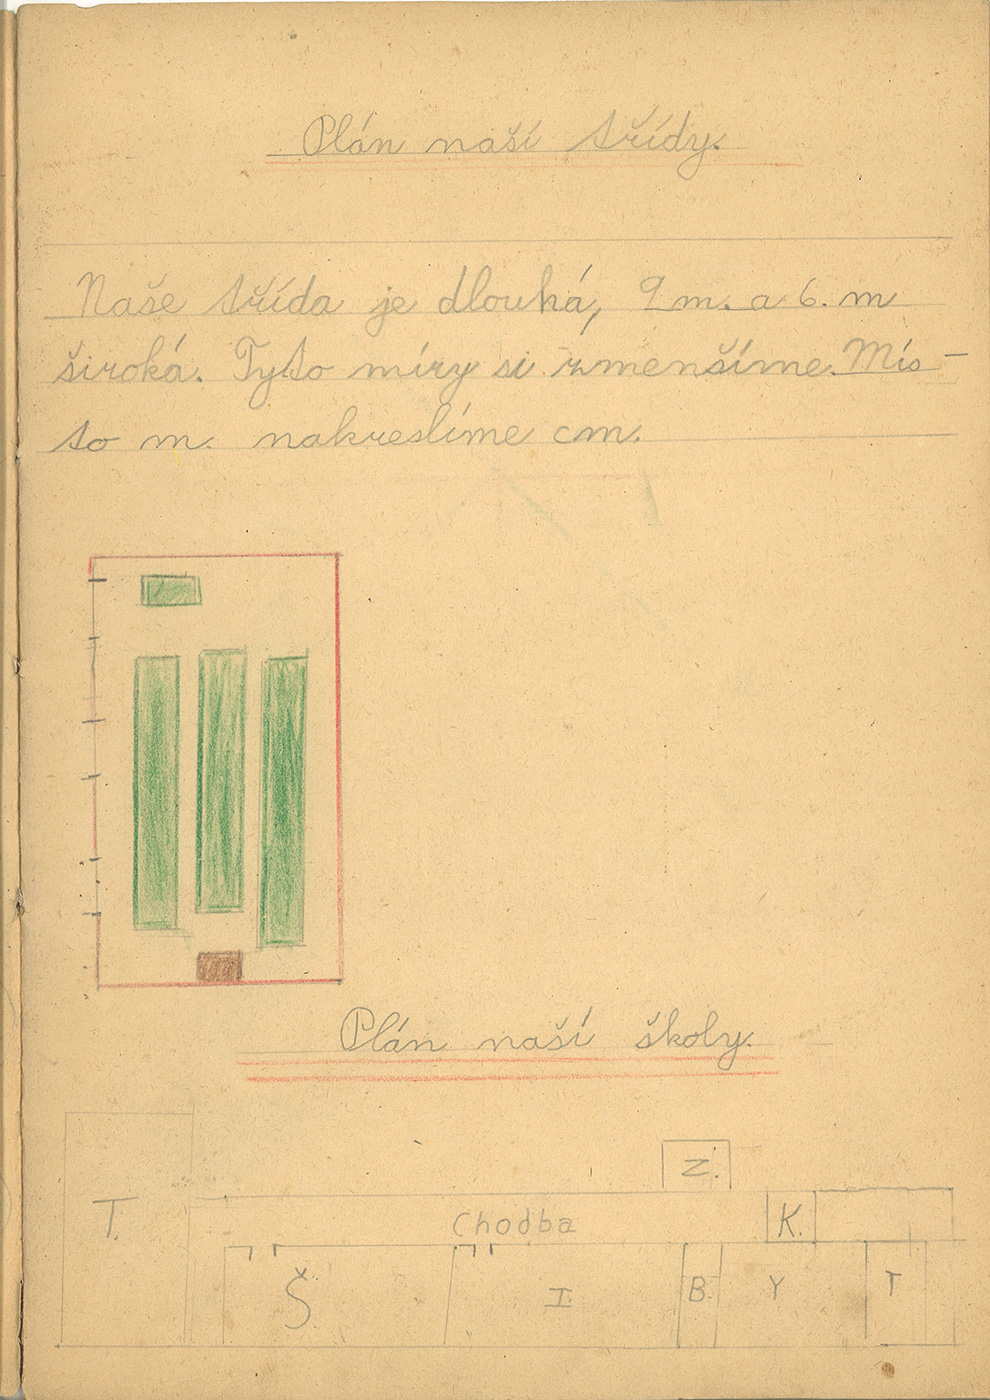 Plán naší třídy.
Naše třída je dlouhá, 9 m. a 6. m
široká. Tyto míry si zmenšíme. Mís-
to m. nakreslíme cm.
Plán naší školy.
Z.
T.
Chodba
K.
Š
I
B.
Y
T